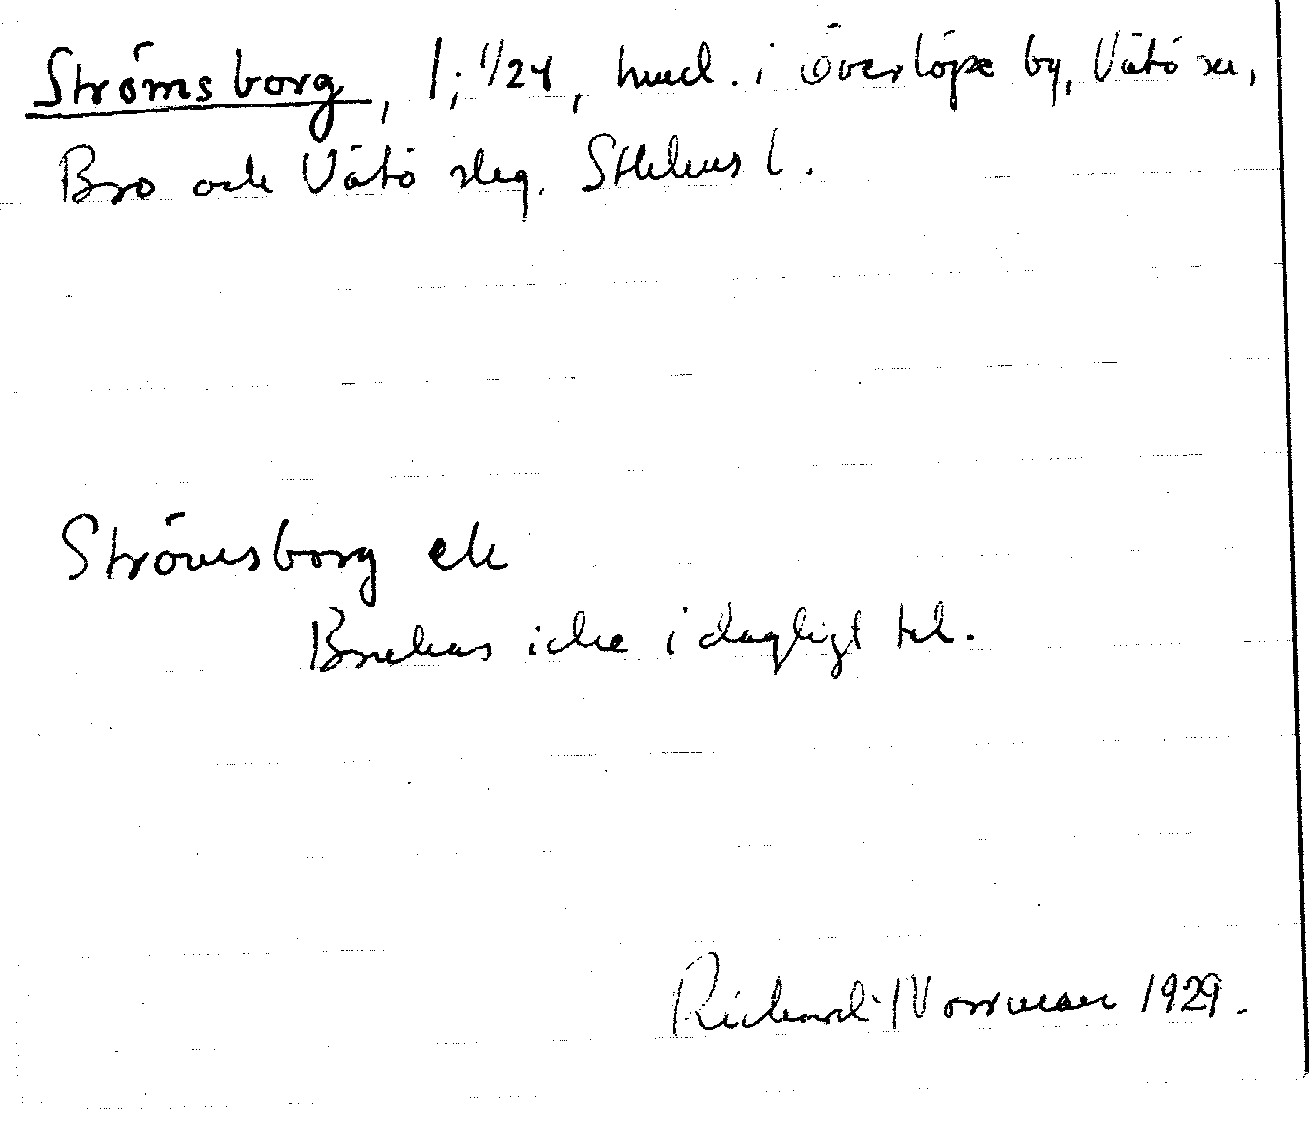 Strömsborg, 1; 1/24, hmd. i Överlöpe by, Vätö sn,
Bro och Vätö slag. Sthlms l.
Strömsborg ek
Brukas icke i dagligt tal.
Richard Norrman 1929.